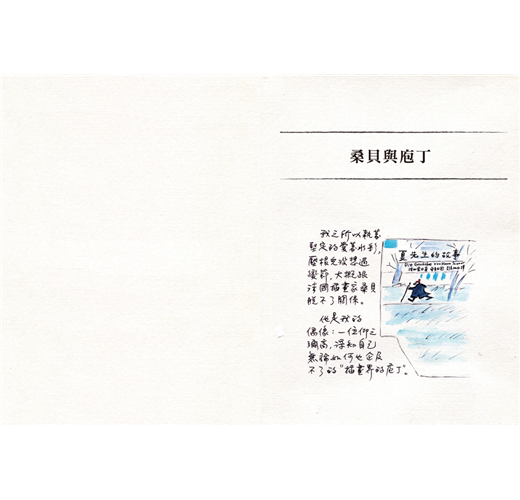 桑貝與庖丁
我之所以執著
堅定的愛著水彩,
壓根兒沒想過
變節,大概跟
法國插畫家桑貝
脫不了關係。
他是我的
偶像:一位仰之
彌高,深知自己
無論如何也企及
不了的"插畫界的庖丁"。
夏先生的故事